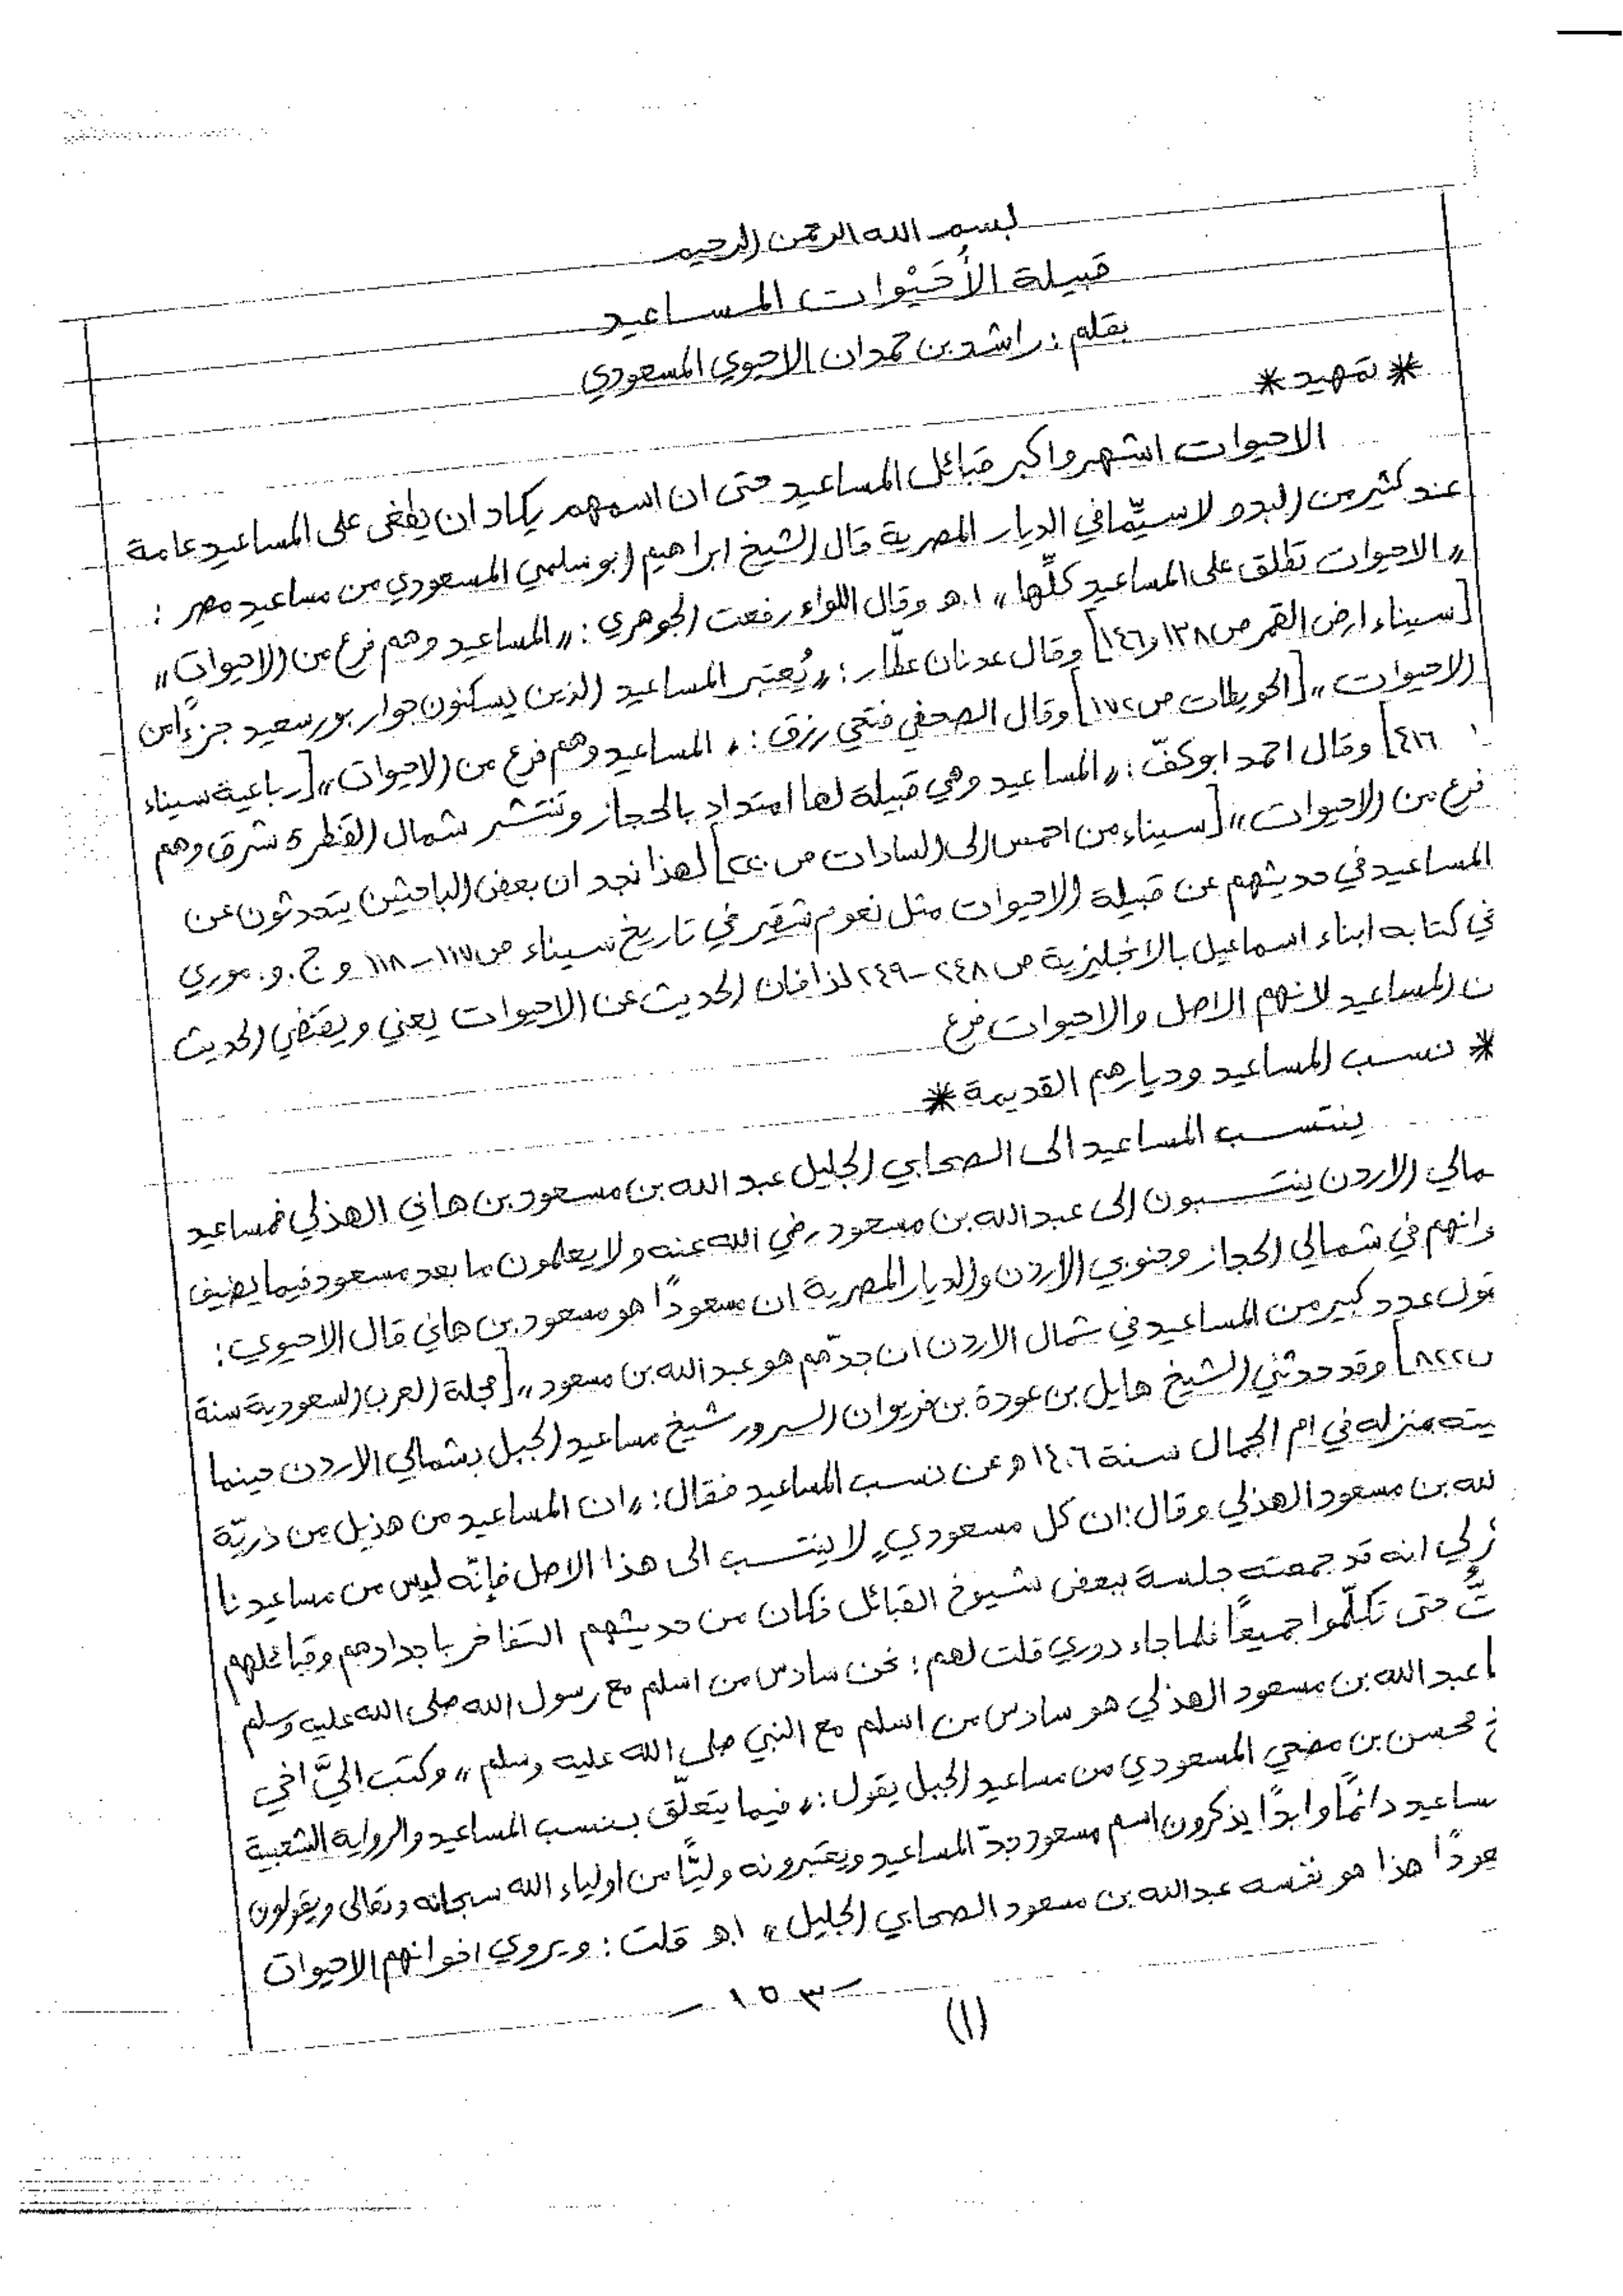 بسم الله الرحمن الرحيم
قبيلة الأُحَيْوات المساعيد
بقلم : راشد بن حمدان الاحيوي المسعودي
* تمهيد *
الاحيوات اشهر واكبر قبائل المساعيد حتى ان اسمهم يكاد ان يطغى على المساعيد عامة
عند كثير من البدو لاسيّما في الديار المصرية قال الشيخ ابراهيم ابو سلمي المسعودي من مساعيد مصر :
" الاحيوات تطلق على المساعيد كلّها " ا.هـ وقال اللواء رفعت الجوهري : " المساعيد وهم فرع من الاحيوات "
[ سيناء ارض القمر ص ١٣٨ و ١٤٦ ] وقال عدنان عطّار : " يُعتبر المساعيد الذين يسكنون جوار بور سعيد جزءًا من
الاحيوات " [ الحويطات ص ١٧٢ ] وقال الصحفي فتحي رزق : " المساعيد وهم فرع من الاحيوات " [ رباعية سيناء
٤١٦ ] وقال احمد ابو كفّ : " المساعيد وهي قبيلة لها امتداد بالحجاز وتنتشر شمال القنطرة شرق وهم
فرع من الاحيوات " [ سيناء من احمس الى السادات ص ٢٢٠ ] لهذا نجد ان بعض الباحثين يتحدثون عن
المساعيد في حديثهم عن قبيلة الاحيوات مثل نعوم شقير في تاريخ سيناء ص ١١٧ – ١١٨ و ج . و . موري
في كتابه ابناء اسماعيل بالانجليزية ص ٢٤٨ – ٢٤٩ لذا فان الحديث عن الاحيوات يعني ويقتضي الحديث
ن المساعيد لانهم الاصل والاحيوات فرع
* نسب المساعيد وديارهم القديمة *
ينتسب المساعيد الى الصحابي الجليل عبد الله بن مسعود بن هاني الهذلي فمساعيد
مالي الاردن ينتسبون الى عبدالله بن مسعود رضي الله عنه ولا يعلمون ما بعد مسعود فيما يضيف
وانهم في شمالي الحجاز وجنوبي الاردن والديار المصرية ان مسعودًا هو مسعود بن هاني قال الاحيوي :
قول عدد كبير من المساعيد في شمال الاردن ان جدّهم هو عبدالله بن مسعود " [ مجلة العرب السعودية سنة
٨٢٢ ] وقد حدثني الشيخ هايل بن عودة بن فريوان السرور شيخ مساعيد الجبل بشمالي الاردن حينما
يته منزله في ام الجمال سنة ١٤٠٦ هـ عن نسب المساعيد فقال : " ان المساعيد من هذيل من ذريّة
لله بن مسعود الهذلي وقال : ان كل مسعودي لا ينتسب الى هذا الاصل فإنّه ليس من مساعيدنا
لي انه قد جمعته جلسة ببعض شيوخ القبائل فكان من حديثهم التفاخر باجدادهم وقبائلهم
تُّ حتى تكلّموا جميعًا فلما جاء دوري قلت لهم : نحن سادس من اسلم مع رسول الله صلى الله عليه وسلم
ا عبد الله بن مسعود الهذلي هو سادس من اسلم مع النبي صلى الله عليه وسلم " وكتب اليَّ اخي
خ محسن بن مضحي المسعودي من مساعيد الجبل يقول : " فيما يتعلّق بنسب المساعيد والرواية الشعبية
ساعيد دائمًا وابدًا يذكرون اسم مسعود جدّ المساعيد ويعتبرونه وليًّا من اولياء الله سبحانه وتعالى ويقولون
عودًا هذا هو نفسه عبدالله بن مسعود الصحابي الجليل " ا.هـ قلت : ويروي اخوانهم الاحيوات
– ١٥٣ –
(١)